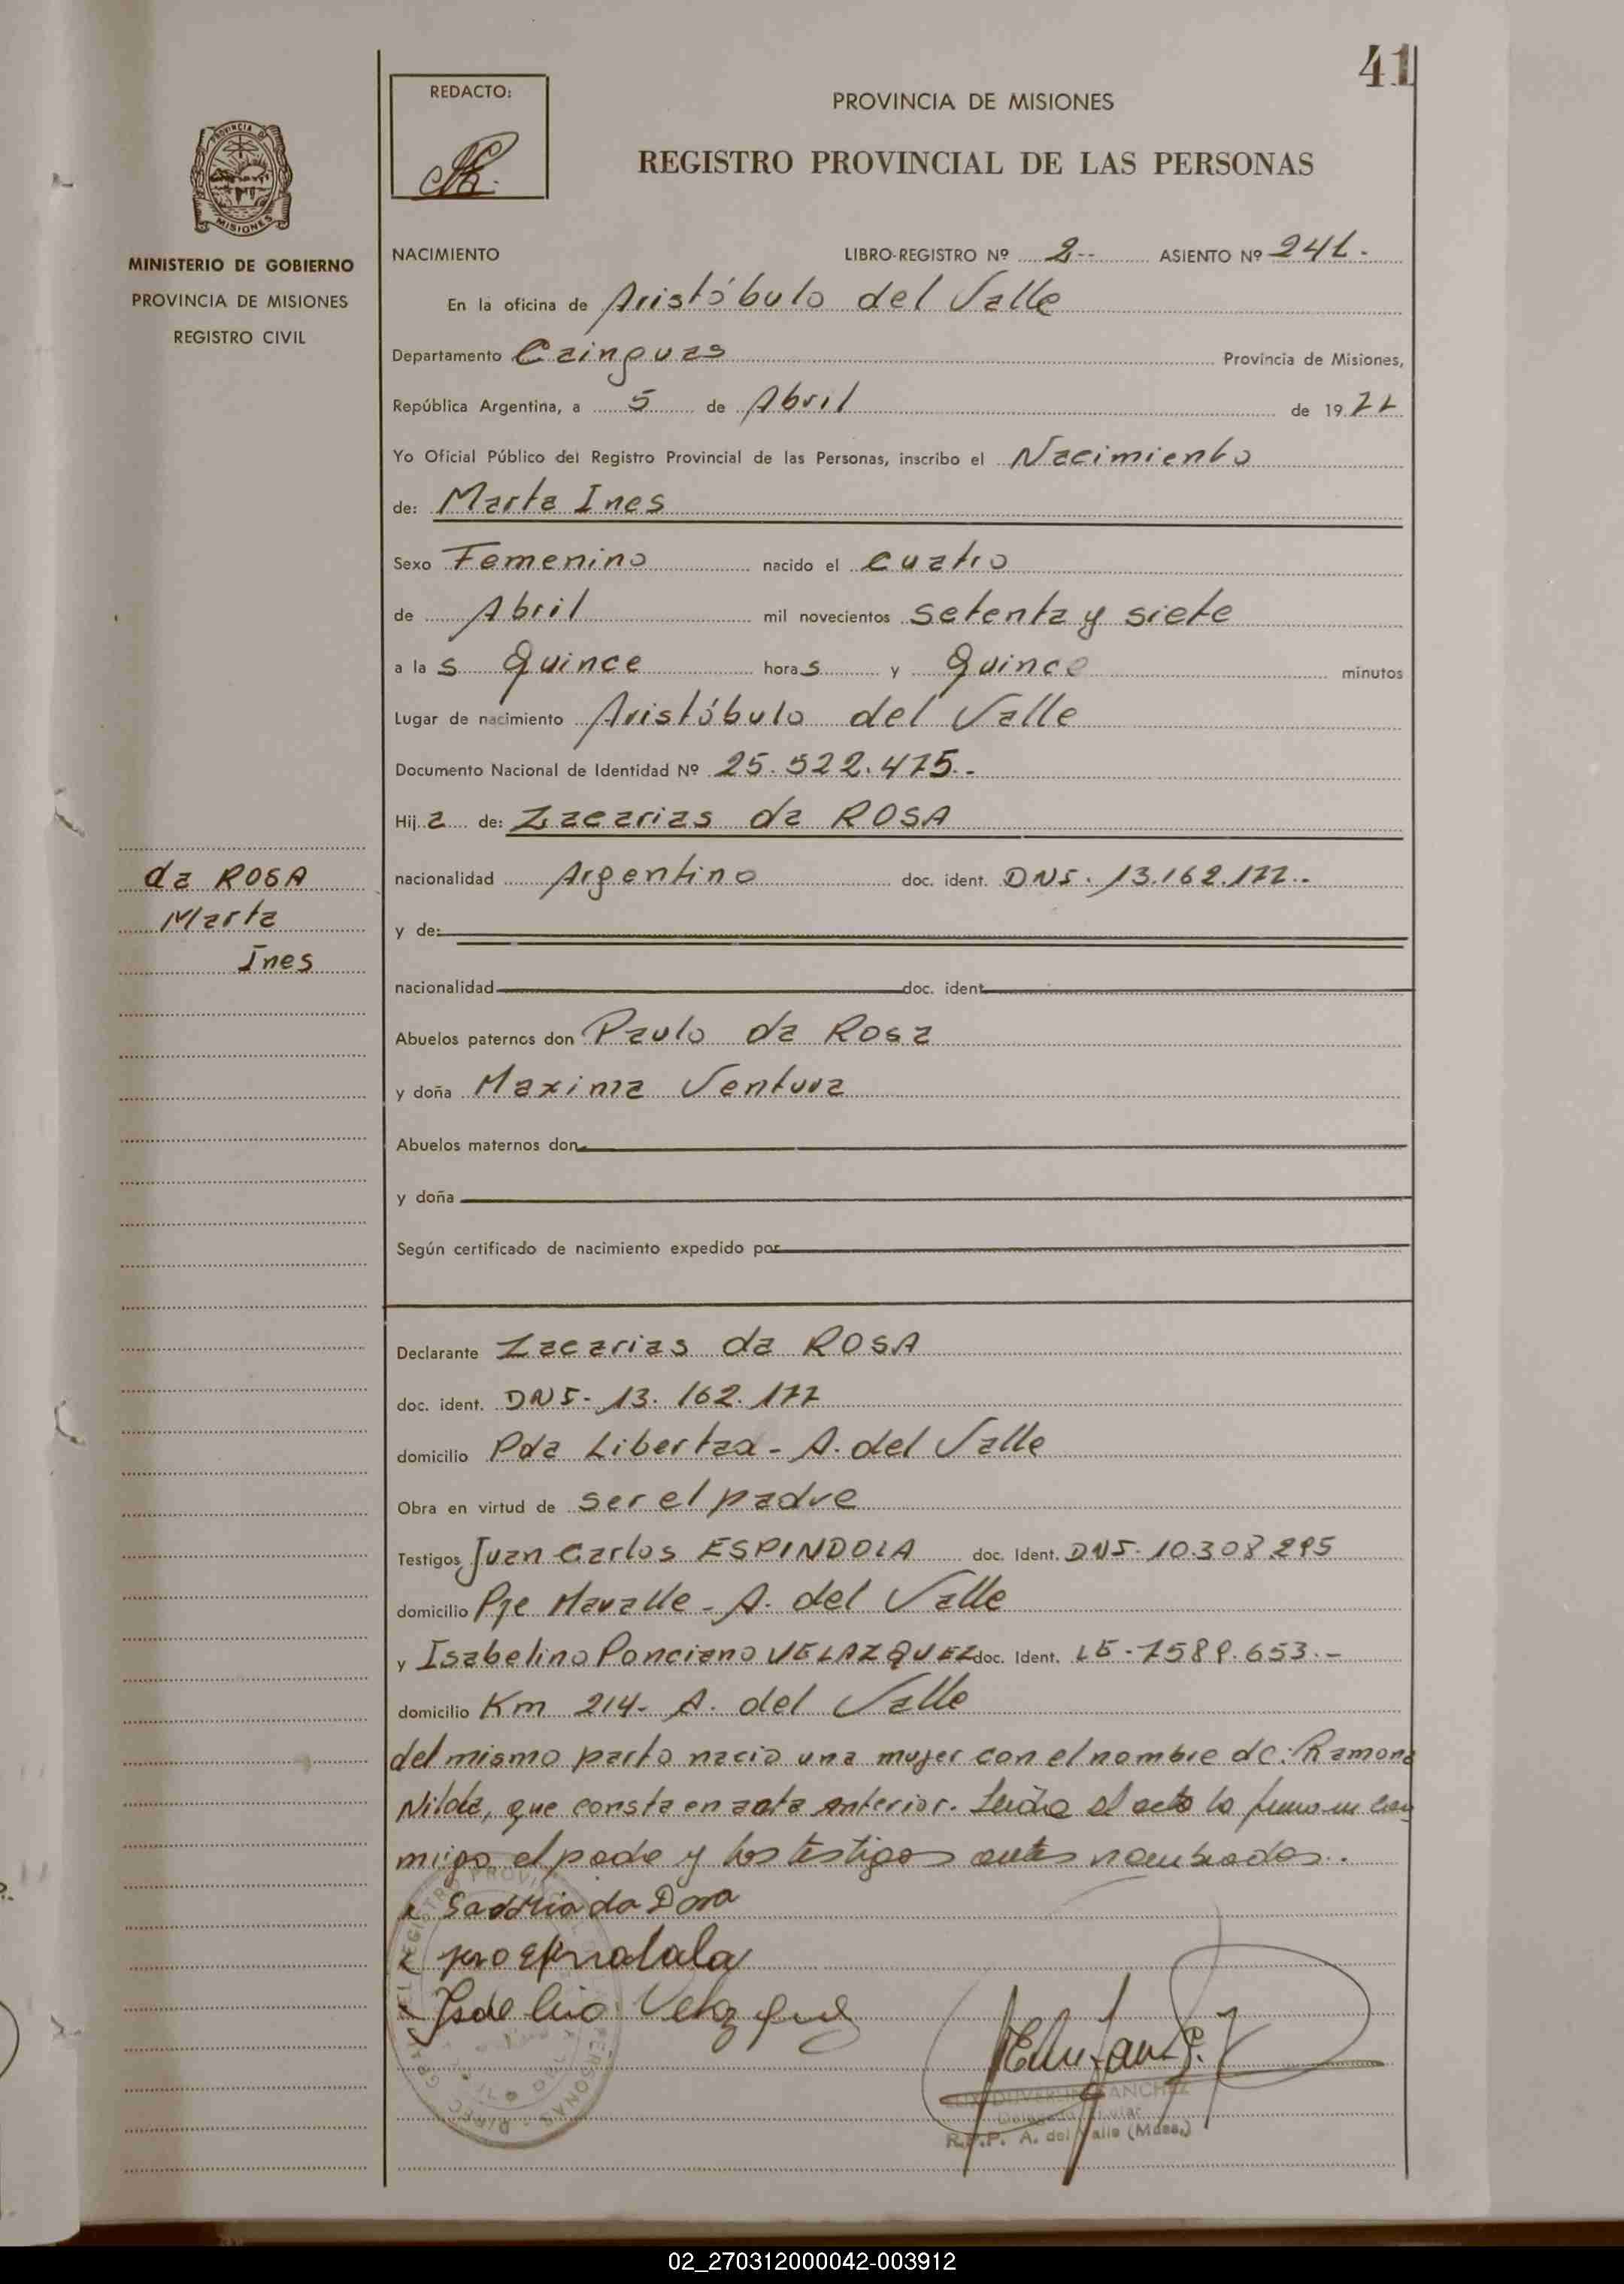 41
REDACTO:
PROVINCIA DE MISIONES
REGISTRO PROVINCIAL DE LAS PERSONAS
PROVINCIA DE
MISIONES
MINISTERIO DE GOBIERNO
PROVINCIA DE MISIONES
REGISTRO CIVIL
NACIMIENTO LIBRO-REGISTRO Nº 2-- ASIENTO Nº 241.-
En la oficina de Aristóbulo del Valle
Departamento Cainguas Provincia de Misiones,
República Argentina, a 5 de Abril de 1977
Yo Oficial Público del Registro Provincial de las Personas, inscribo el Nacimiento
de: Marta Ines
Sexo Femenino nacido el cuatro
de Abril mil novecientos setenta y siete
a la s Quince hora s y Quince minutos
Lugar de nacimiento Aristóbulo del Valle
Documento Nacional de Identidad Nº 25.522.475.-
Hij a de: Zacarias da ROSA
nacionalidad Argentino doc. ident. DNI. 13.162.177.-
da ROSA
Marta
Ines
y de:
nacionalidad doc. ident.
Abuelos paternos don Paulo da Rosa
y doña Maxima Ventura
Abuelos maternos don
y doña
Según certificado de nacimiento expedido por
Declarante Zacarias da ROSA
doc. ident. DNI- 13. 162. 177
domicilio Pda Libertad - A. del Valle
Obra en virtud de ser el padre
Testigos Juan Carlos ESPINDOLA doc. Ident. DNI. 10.308.295
domicilio Pje Mavalle - A. del Valle
y Isabelino Ponciano VELAZQUEZ doc. Ident. LE - 7589.653.-
domicilio Km 214- A. del Valle
del mismo parto nacio una mujer con el nombre de: Ramona
Nilda, que consta en acta anterior. Leida el acta la firman con
migo el padre y los testigos antes nombrados.
da Rosa
Velazquez
SANCHEZ
R.P.P. A. del Valle (Mnes.)
02_270312000042-003912